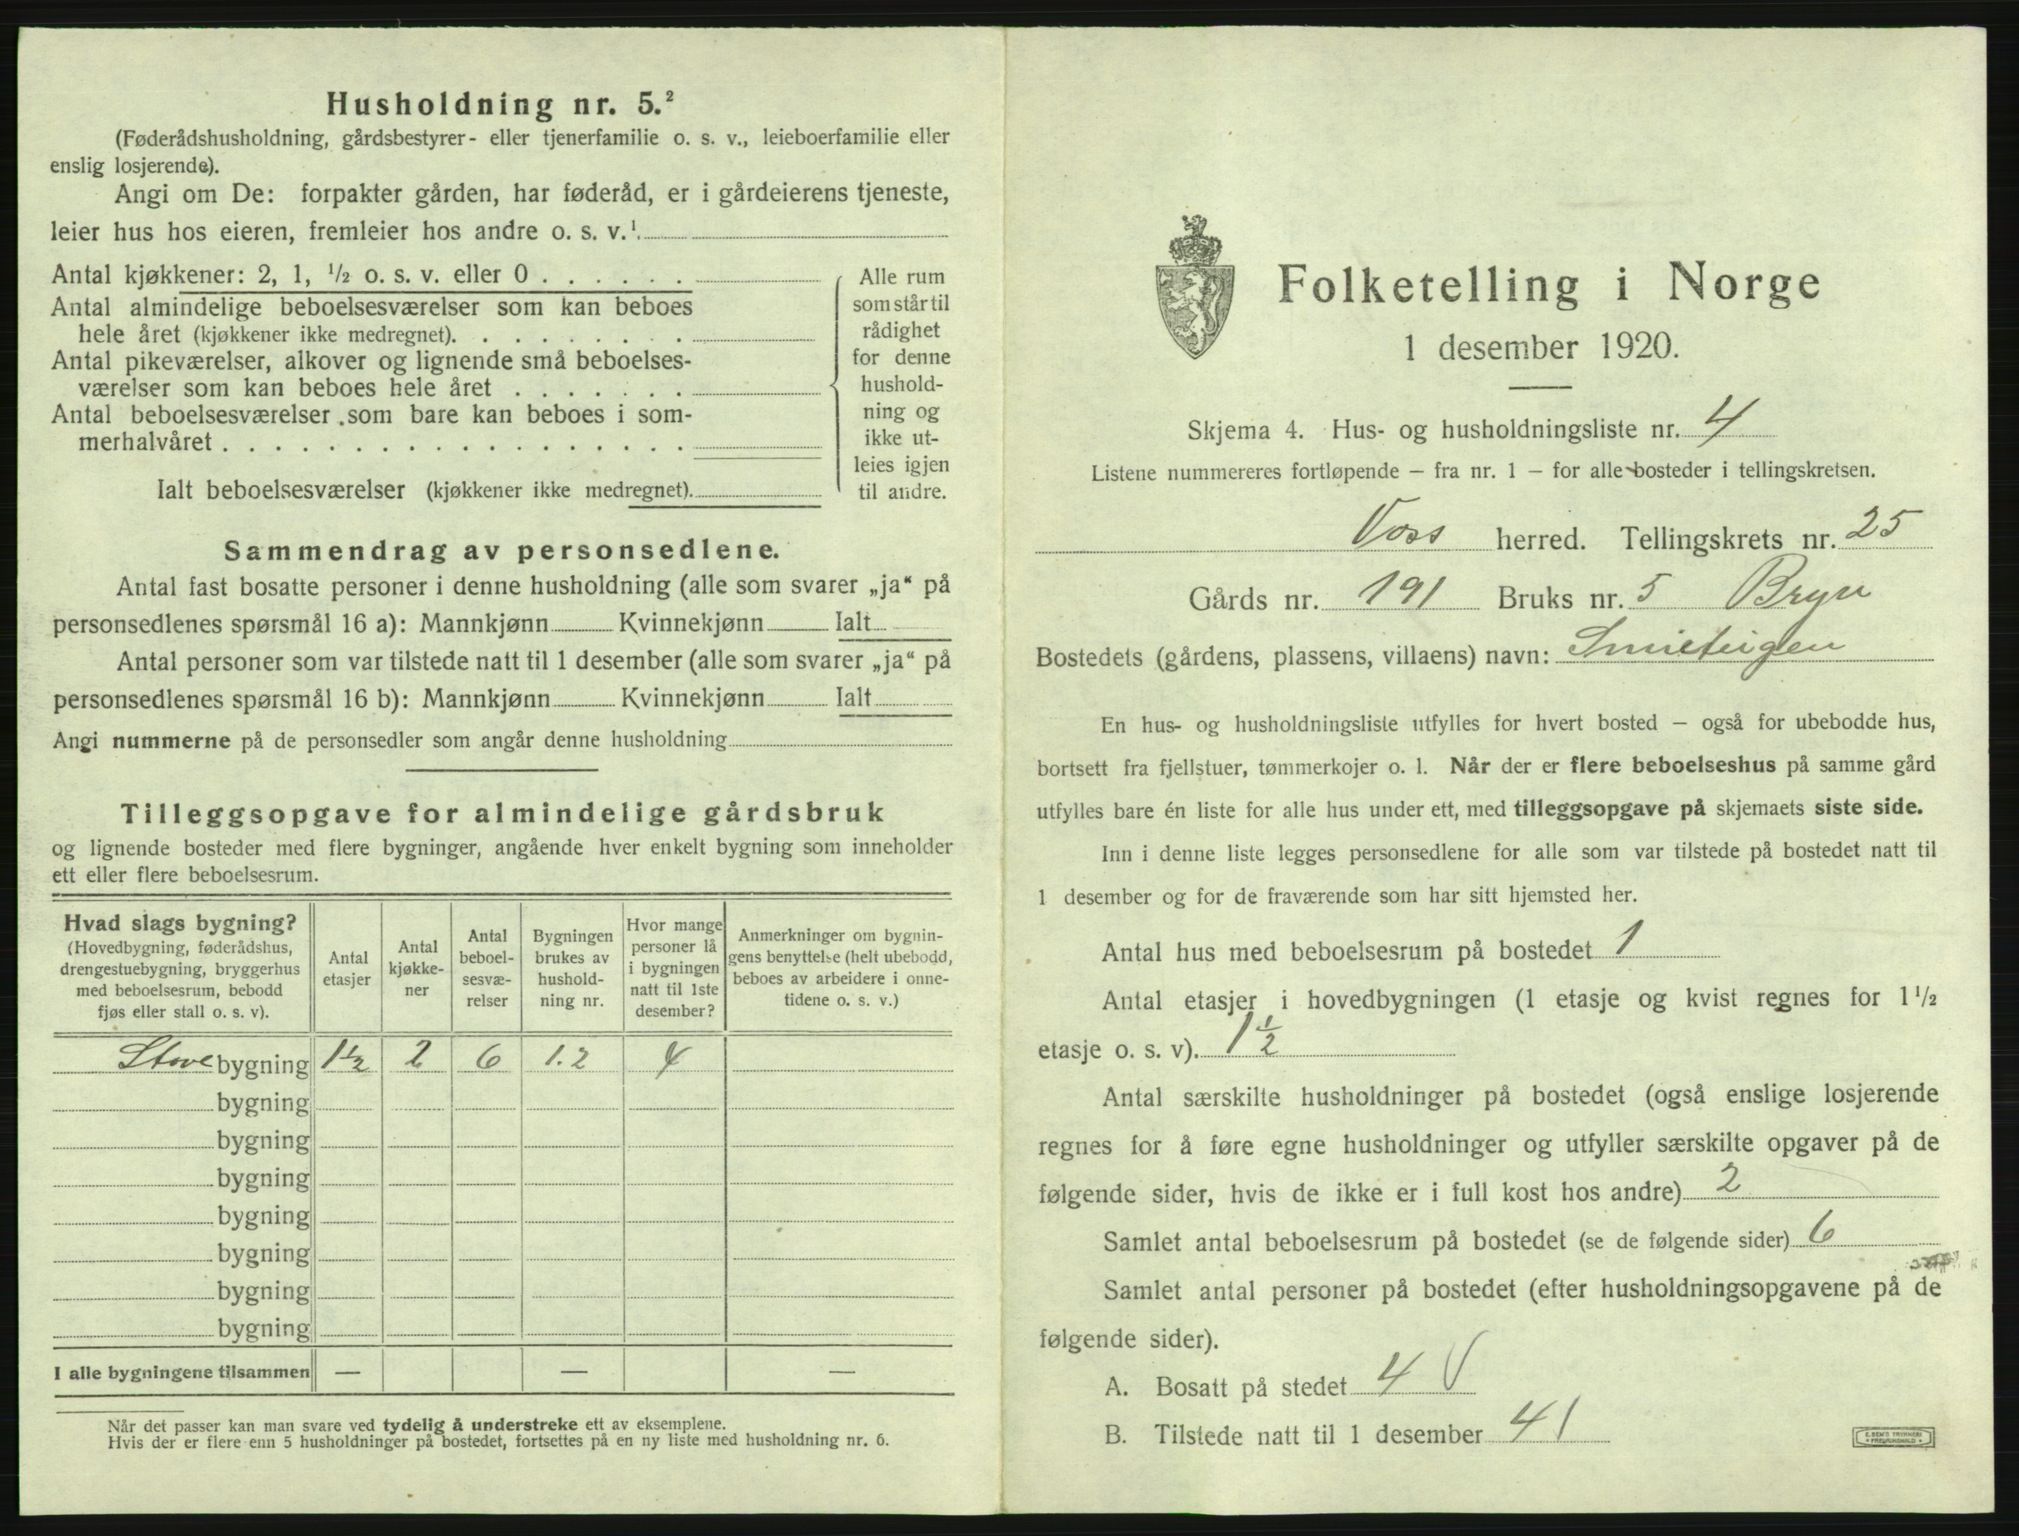 Husholdning nr. 5.²
(Føderådshusholdning, gårdsbestyrer- eller tjenerfamilie o. s. v., leieboerfamilie eller
enslig losjerende).
Angi om De: forpakter gården, har føderåd, er i gårdeierens tjeneste,
leier hus hos eieren, fremleier hos andre o. s. v.¹.
Antal kjøkkener: 2, 1, ½ o. s. v. eller 0 . . . . . .
Antal almindelige beboelsesværelser som kan beboes
hele året (kjøkkener ikke medregnet). . . . . . . . .
Antal pikeværelser, alkover og lignende små beboelses-
værelser som kan beboes hele året . . . . . . .
Antal beboelsesværelser som bare kan beboes i som-
merhalvåret . . . . . . . . . . . . . . . . . .
Ialt beboelsesværelser (kjøkkener ikke medregnet).
Alle rum
som står til
rådighet
for denne
hushold-
ning og
ikke ut-
leies igjen
til andre.
Sammendrag av personsedlene.
Antal fast bosatte personer i denne husholdning (alle som svarer „ja“ på
personsedlenes spørsmål 16 a): Mannkjønn Kvinnekjønn Ialt
Antal personer som var tilstede natt til 1 desember (alle som svarer „ja“ på
personsedlenes spørsmål 16 b): Mannkjønn Kvinnekjønn Ialt
Angi nummerne på de personsedler som angår denne husholdning
Tilleggsopgave for almindelige gårdsbruk
og lignende bosteder med flere bygninger, angående hver enkelt bygning som inneholder
ett eller flere beboelsesrum.
Hvad slags bygning?
(Hovedbygning, føderådshus,
drengestuebygning, bryggerhus
med beboelsesrum, bebodd
fjøs eller stall o. s. v).
Antal
etasjer
Antal
kjøkke-
ner
Antal
beboel-
sesvæ-
relser
Bygningen
brukes av
hushold-
ning nr.
Hvor mange
personer lå
i bygningen
natt til 1ste
desember?
Anmerkninger om bygnin-
gens benyttelse (helt ubebodd,
beboes av arbeidere i onne-
tidene o. s. v.)
Stove bygning 1½ 2 6 1.2 4
bygning
bygning
bygning
bygning
bygning
bygning
bygning
I alle bygningene tilsammen — — —
Når det passer kan man svare ved tydelig å understreke ett av eksemplene.
Hvis der er flere enn 5 husholdninger på bostedet, fortsettes på en ny liste med husholdning nr. 6.
Folketelling i Norge
1 desember 1920.
Skjema 4. Hus- og husholdningsliste nr. 4
Listene nummereres fortløpende – fra nr. 1 – for alle bosteder i tellingskretsen.
Voss herred. Tellingskrets nr. 25
Gårds nr. 191 Bruks nr. 5 Bryn
Bostedets (gårdens, plassens, villaens) navn: Smieteigen
En hus- og husholdningsliste utfylles for hvert bosted – også for ubebodde hus,
bortsett fra fjellstuer, tømmerkojer o. l. Når der er flere beboelseshus på samme gård
utfylles bare én liste for alle hus under ett, med tilleggsopgave på skjemaets siste side.
Inn i denne liste legges personsedlene for alle som var tilstede på bostedet natt til
1 desember og for de fraværende som har sitt hjemsted her.
Antal hus med beboelsesrum på bostedet 1
Antal etasjer i hovedbygningen (1 etasje og kvist regnes for 1½
etasje o. s. v). 1½
Antal særskilte husholdninger på bostedet (også enslige losjerende
regnes for å føre egne husholdninger og utfyller særskilte opgaver på de
følgende sider, hvis de ikke er i full kost hos andre) 2
Samlet antal beboelsesrum på bostedet (se de følgende sider) 6
Samlet antal personer på bostedet (efter husholdningsopgavene på de
følgende sider).
A. Bosatt på stedet 4 V
B. Tilstede natt til 1 desember 41